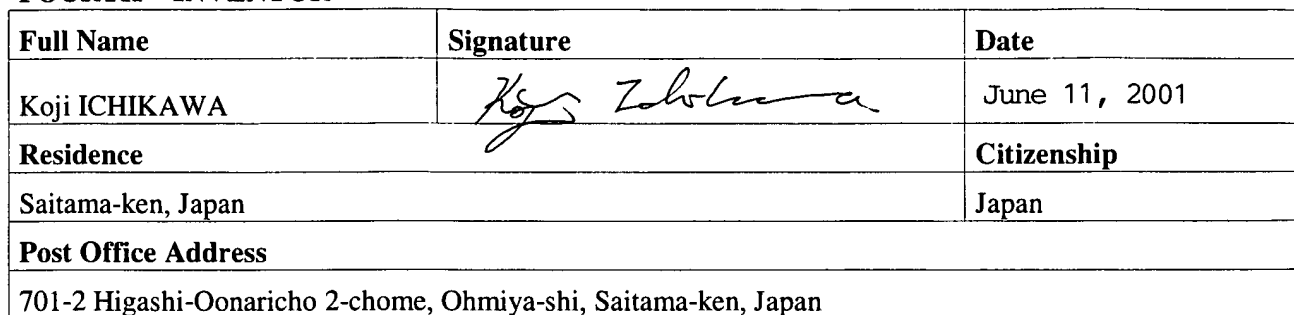 Full Name Signature Date
Koji ICHIKAWA Koji Ichikawa June 11, 2001
Residence Citizenship
Saitama-ken, Japan Japan
Post Office Address
701-2 Higashi-Oonaricho 2-chome, Ohmiya-shi, Saitama-ken, Japan